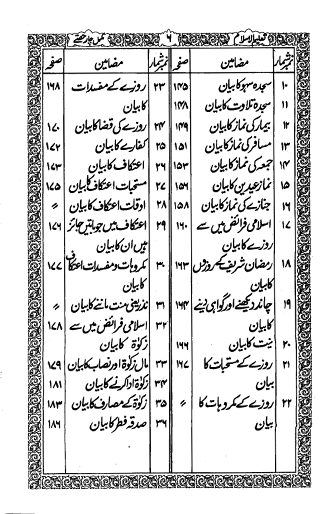 تعلیم الاسلام ۶ مکمل چار حصے
نمبر شمار مضامین صفحہ
۱۰ سجدہ سہو کا بیان ۱۴۵
۱۱ سجدہ تلاوت کا بیان ۱۴۸
۱۲ بیمار کی نماز کا بیان ۱۴۹
۱۳ مسافر کی نماز کا بیان ۱۵۱
۱۴ جمعہ کی نماز کا بیان ۱۵۳
۱۵ نماز عیدین کا بیان ۱۵۶
۱۶ جنازے کی نماز کا بیان ۱۵۸
۱۷ اسلامی فرائض میں سے ۱۶۰
روزے کا بیان
۱۸ رمضان شریف کے روزوں ۱۶۳
کا بیان
۱۹ چاند دیکھنے اور گواہی دینے ۱۶۴
کا بیان
۲۰ نیت کا بیان ۱۶۶
۲۱ روزے کے مستحبات کا ۱۶۷
بیان
۲۲ روزے کے مکروہات کا 〃
بیان
نمبر شمار مضامین صفحہ
۲۳ روزے کے مفسدات ۱۶۸
کا بیان
۲۴ روزے کی قضا کا بیان ۱۷۰
۲۵ کفارے کا بیان ۱۷۲
۲۶ اعتکاف کا بیان ۱۷۳
۲۷ مستحبات اعتکاف کا بیان ۱۷۵
۲۸ اوقات اعتکاف کا بیان 〃
۲۹ اعتکاف میں جو باتیں جائز ۱۷۶
ہیں ان کا بیان
۳۰ مکروہات و مفسدات اعتکاف ۱۷۷
کا بیان
۳۱ نذر یعنی منت ماننے کا بیان 〃
۳۲ اسلامی فرائض میں سے ۱۷۸
زکوٰۃ کا بیان
۳۳ مال زکوٰۃ اور نصاب کا بیان ۱۷۹
۳۴ زکوٰۃ ادا کرنے کا بیان ۱۸۱
۳۵ زکوٰۃ کے مصارف کا بیان ۱۸۳
۳۶ صدقہ فطر کا بیان ۱۸۶